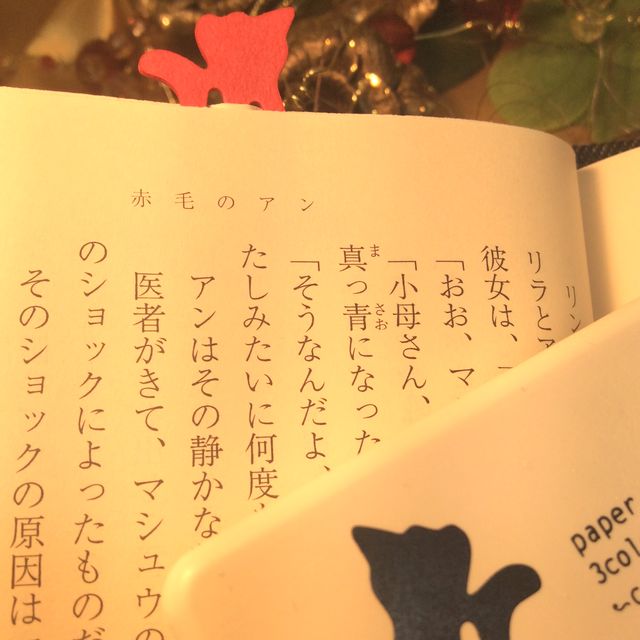 赤毛のアン
リン
リラとア
彼女は、
「おお、マ
「小母さん、
真っ青になった
「そうなんだよ、
たしみたいに何度
アンはその静かな
医者がきて、マシュウの
のショックによったものだ
そのショックの原因は
paper
3col